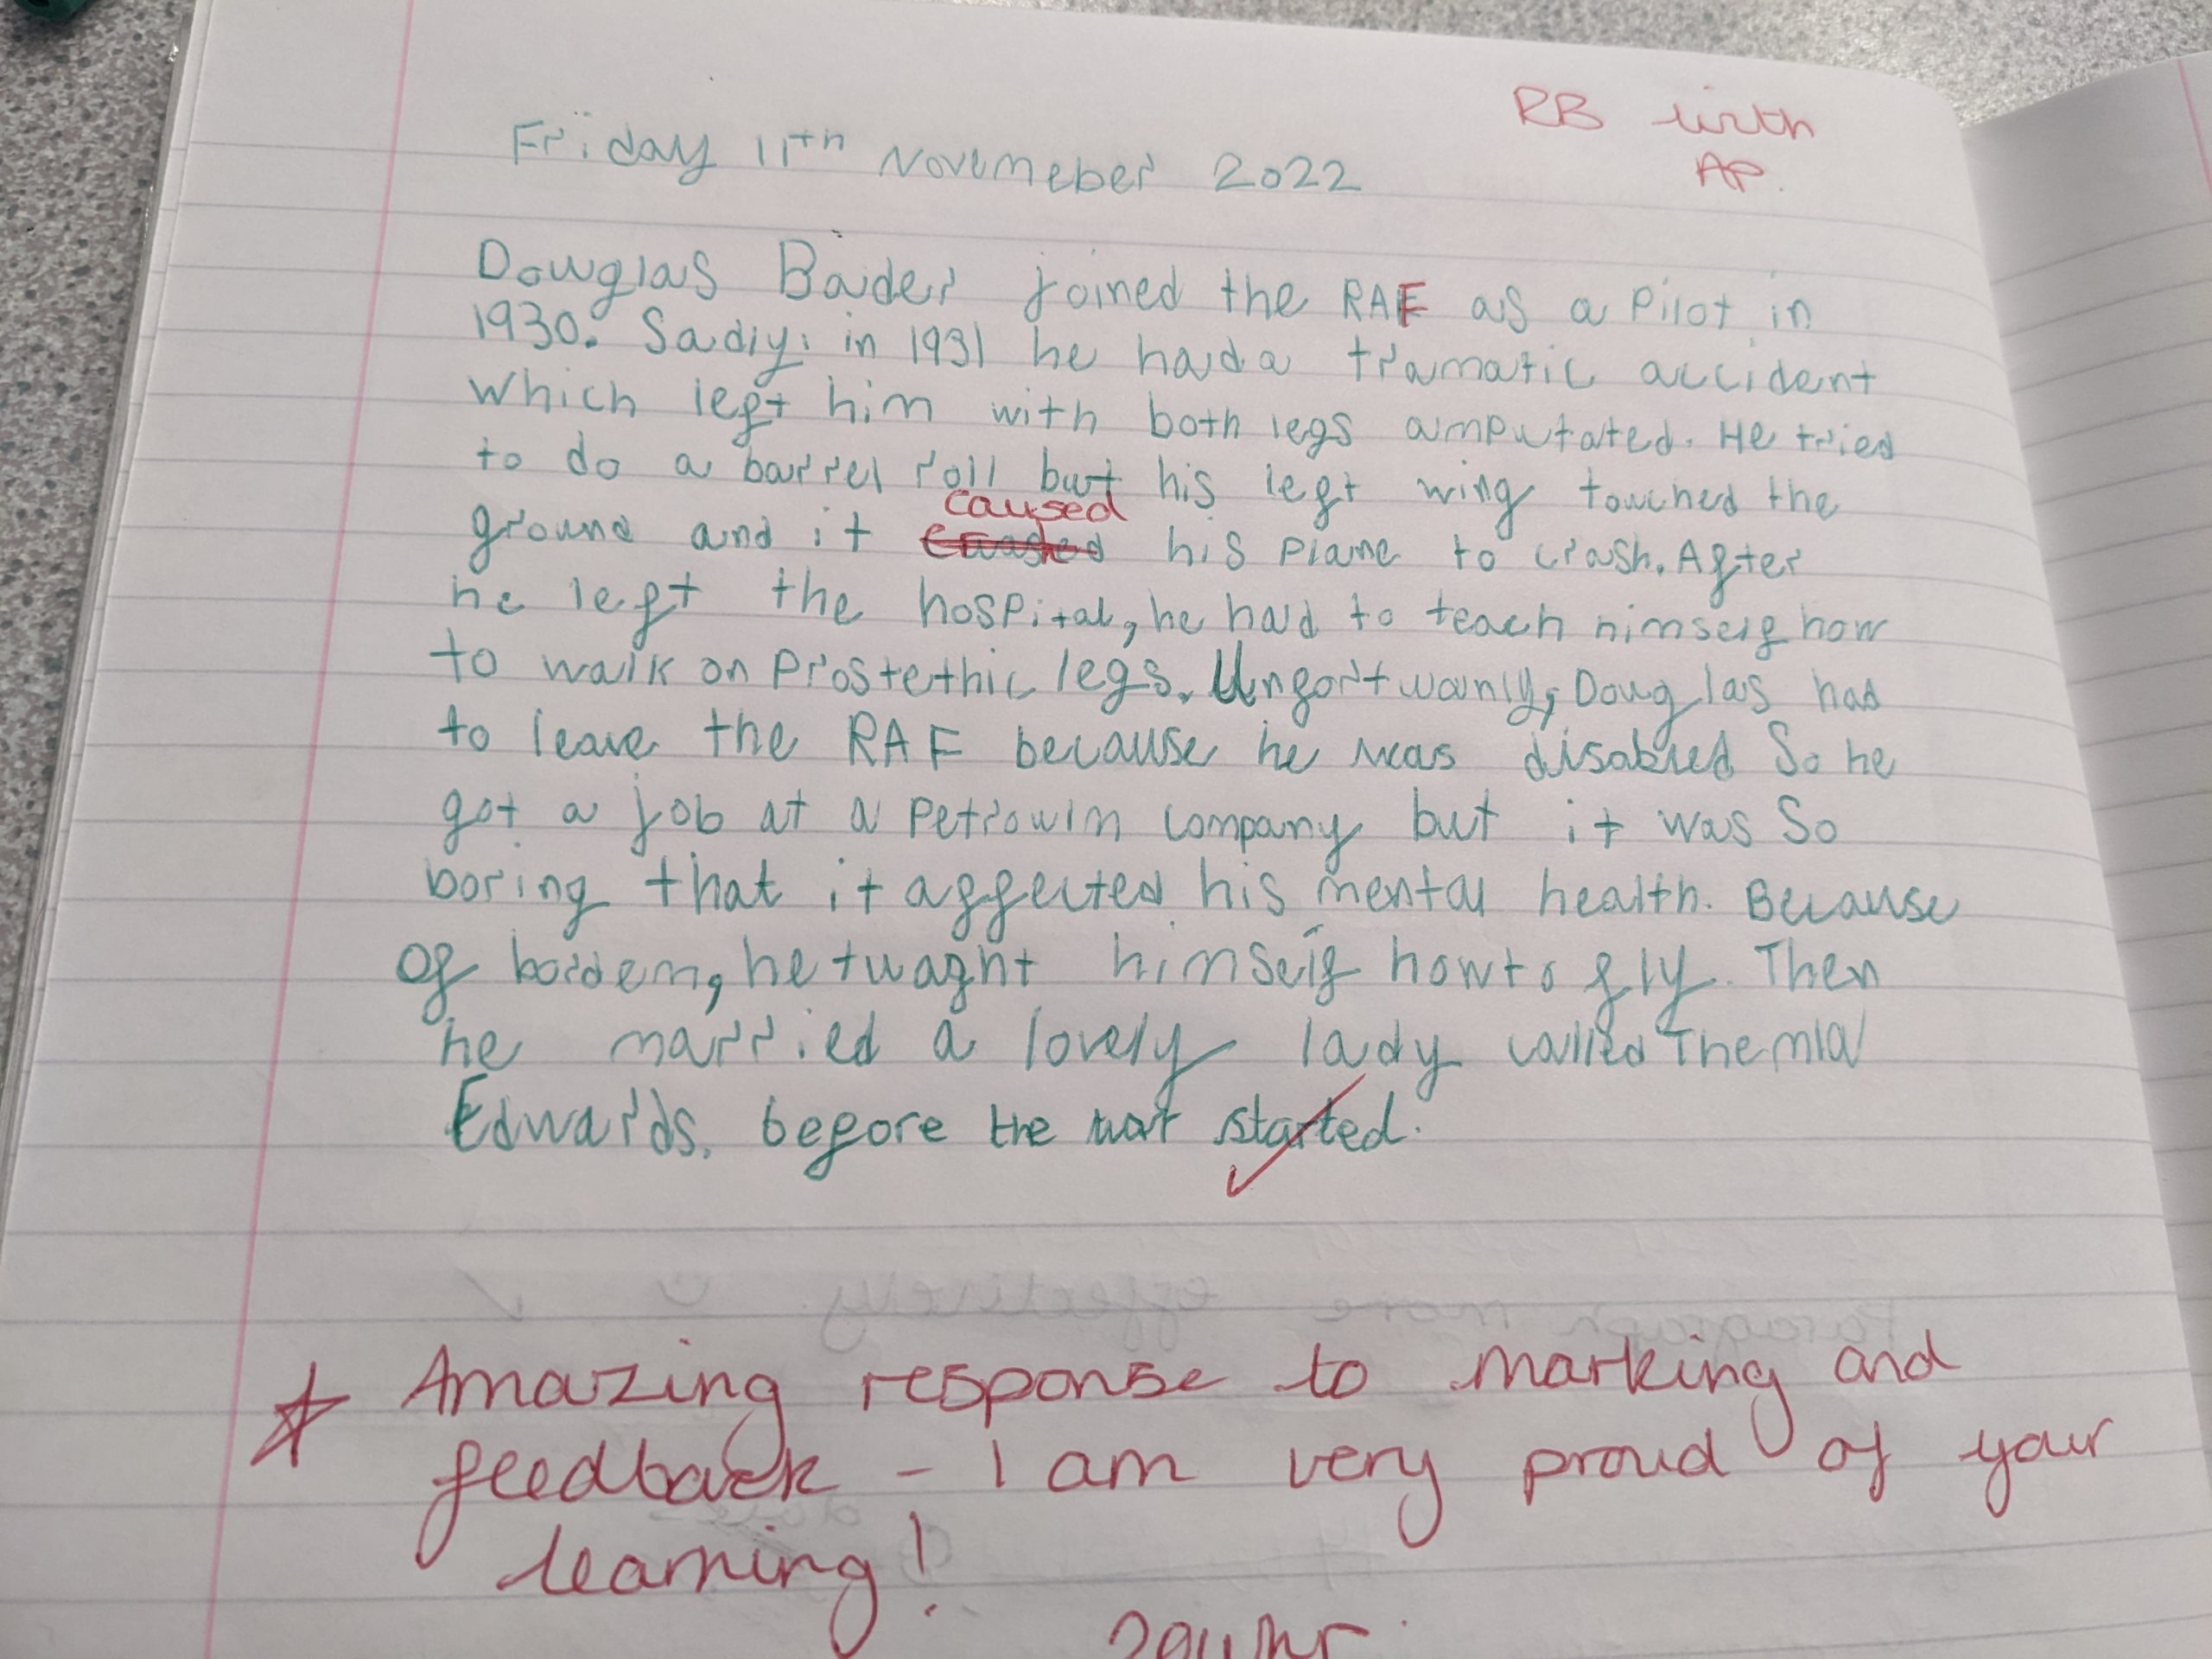 RB with
AP.
Friday 11th Novemeber 2022
Douglas Bader joined the RAF as a Pilot in
1930. Sadly, in 1931 he had a tramatic accident
which left him with both legs amputated. He tried
to do a barrel roll but his left wing touched the
caused
ground and it his plane to crash. After
he left the hospital, he had to teach himself how
to walk on Prostethic legs. Unfortwanly, Douglas had
to leave the RAF because he was disabled So he
got a job at a Petrowlm company but it was So
boring that it affected his mental health. Because
of bordem, he twaght himself how to fly. Then
he married a lovely lady called Themla
Edwards. before the war started.
Amazing response to marking and
feedback - I am very proud of your
learning!